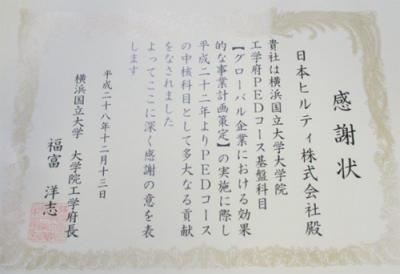 感謝状
日本ヒルティ株式会社殿
貴社は横浜国立大学大学院
工学府PEDコース基盤科目
【グローバル企業における効果
的な事業計画策定】の実施に際し
平成二十二年よりPEDコース
の中核科目として多大なる貢献
をなされました
よってここに深く感謝の意を表
します
平成二十八年十二月十三日
横浜国立大学 大学院工学府長
福富 洋志